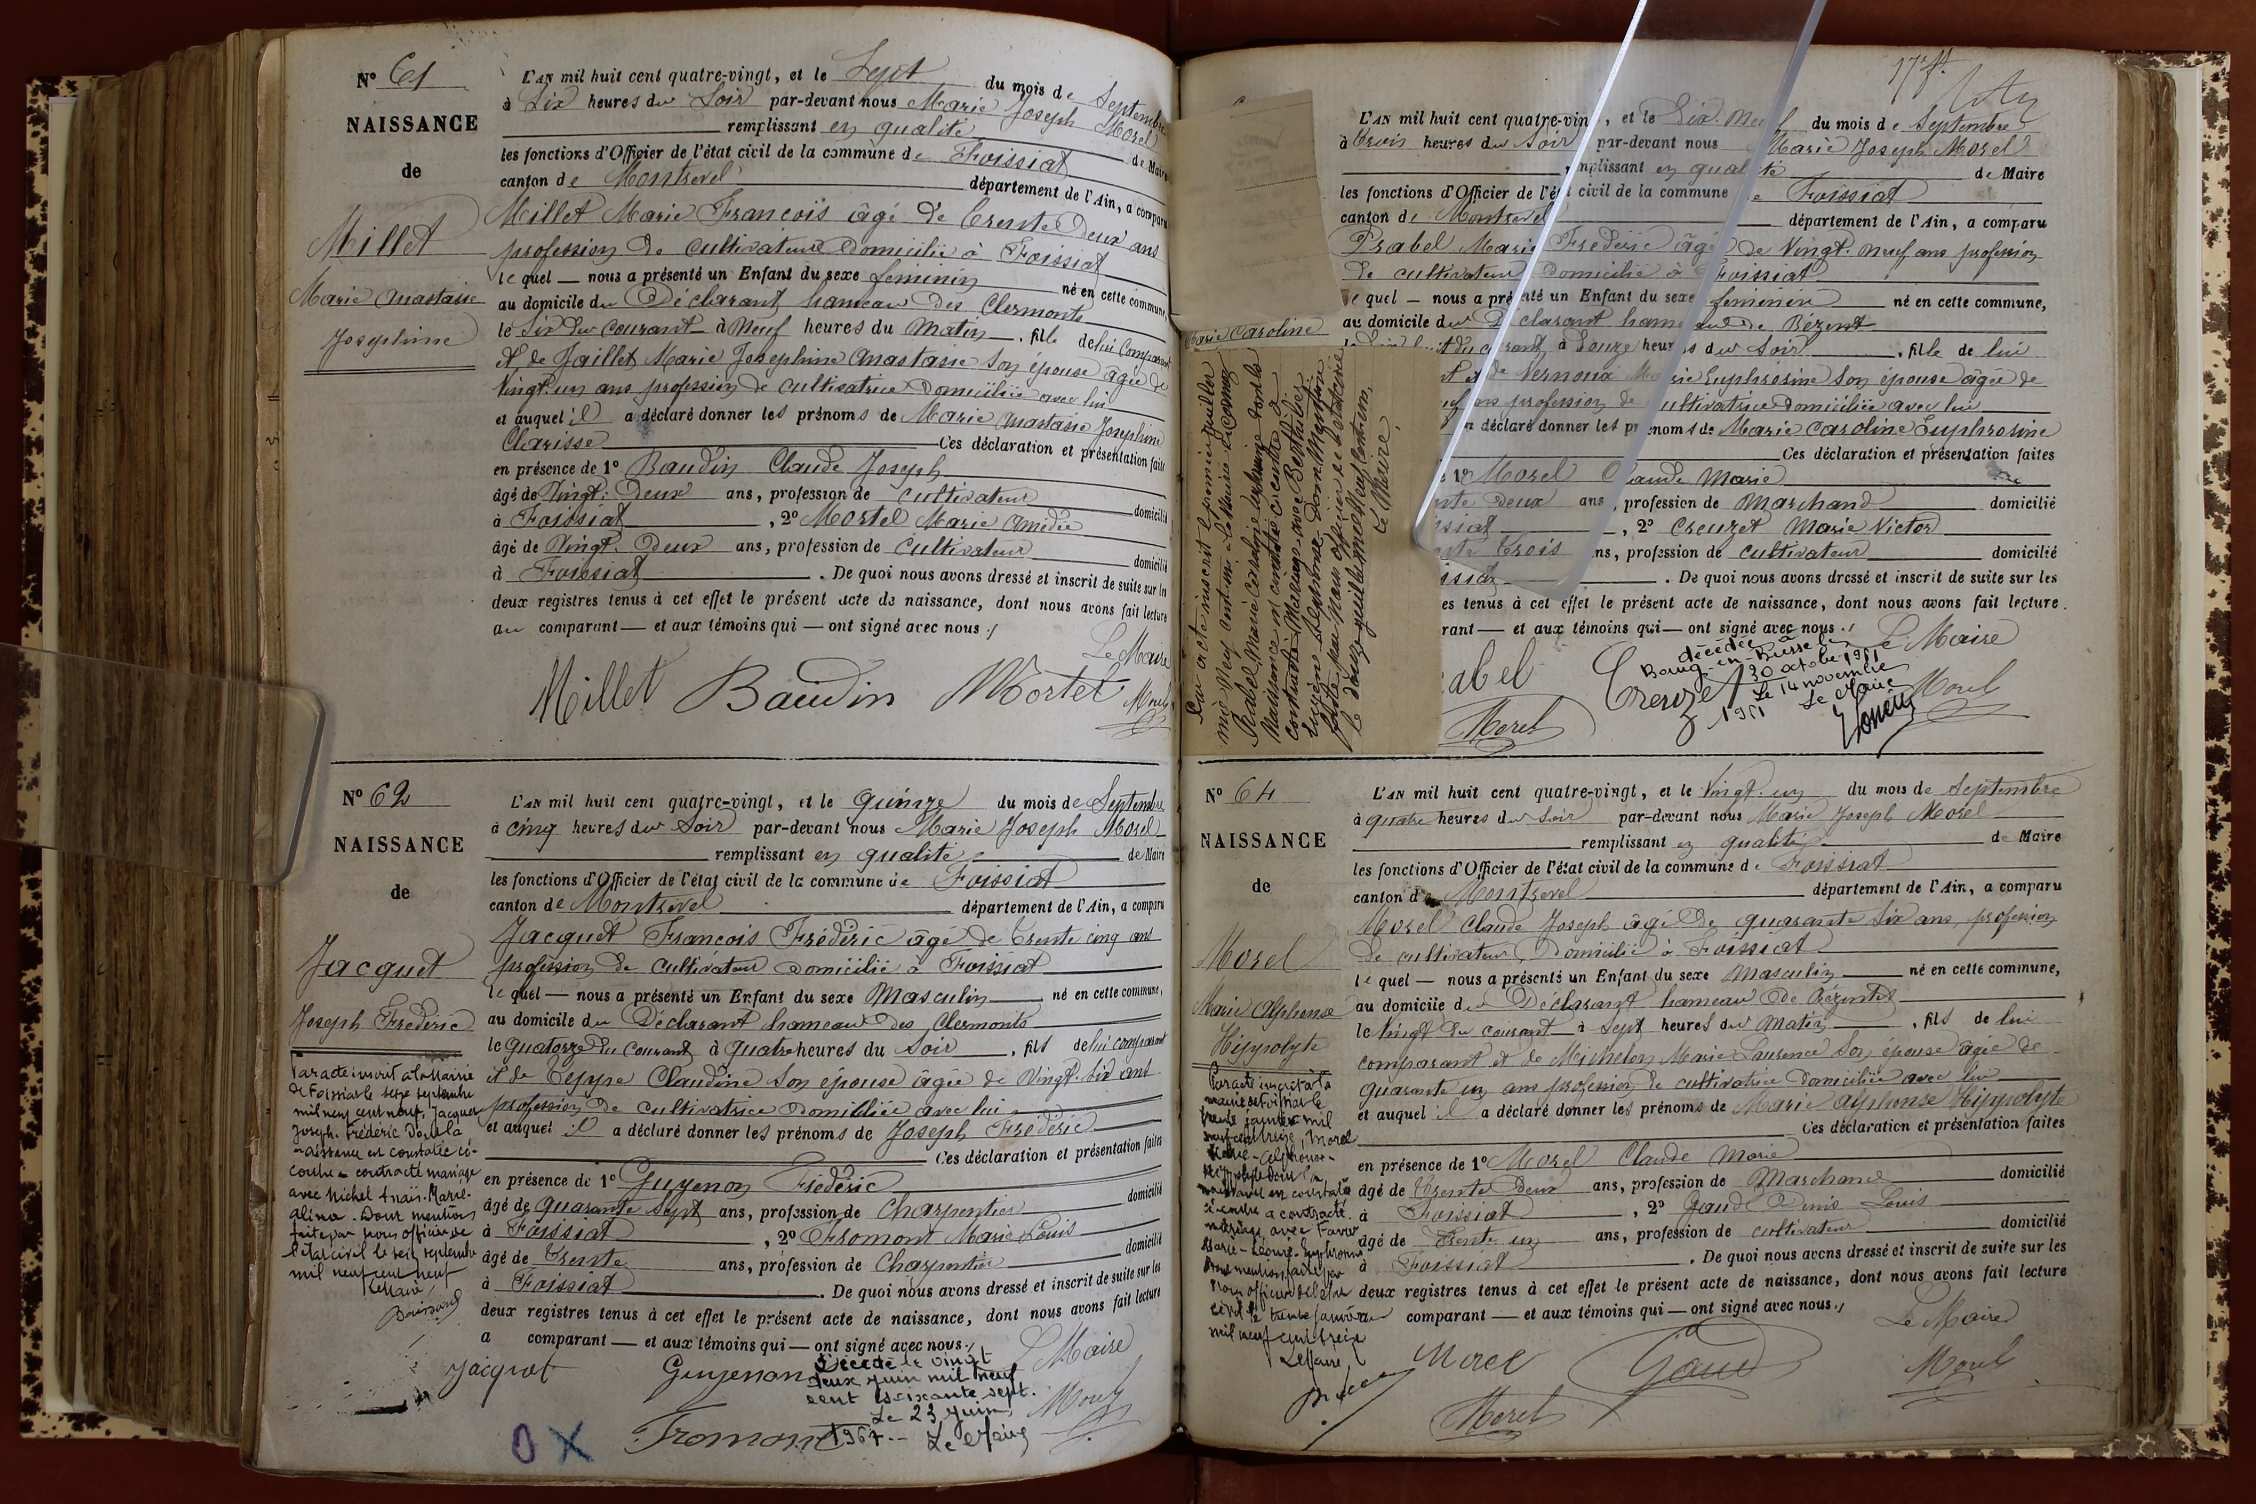 Nº 61
NAISSANCE
de
Millet
Marie Anastasie
Josephine
L'AN mil huit cent quatre-vingt, et le Sept du mois de Septembre
à Six heures du Soir par-devant nous Marie Joseph Morel
remplissant en qualité de Maire
les fonctions d'Officier de l'état civil de la commune de Foissiat
canton de Montrevel département de l'Ain, a comparu
Millet Marie François âgé de trente deux ans
profession de cultivateur domicilié à Foissiat
lequel — nous a présenté un Enfant du sexe féminin né en cette commune,
au domicile du Déclarant hameau des Clermonts
le Six du courant à Neuf heures du Matin, fille de lui Comparant
et de Jaillet Marie Josephine Anastasie son épouse âgée de
Vingt un ans profession de cultivatrice domiciliée avec lui
et auquel il a déclaré donner les prénoms de Marie Anastasie Josephine
Clarisse Ces déclaration et présentation faites
en présence de 1º Baudin Claude Joseph
âgé de Vingt Deux ans, profession de cultivateur domicilié
à Foissiat, 2º Mortel Marie Amédée
âgé de Vingt Deux ans, profession de Cultivateur domicilié
à Foissiat. De quoi nous avons dressé et inscrit de suite sur les
deux registres tenus à cet effet le présent acte de naissance, dont nous avons fait lecture
au comparant — et aux témoins qui — ont signé avec nous
Le Maire
Millet Baudin Mortel Morel
Nº 62
NAISSANCE
de
Jacquet
Joseph Frédéric
Par acte inscrit à la Mairie
de Foissiat le seize septembre
mil neuf cent neuf, Jacquet
Joseph-Frédéric dont la
naissance est constatée ci-
contre a contracté mariage
avec Michel Anaïs-Marie-
Alina. Dont mention
faite par nous officier de
l'état civil le seize septembre
mil neuf cent neuf
Le Maire,
L'AN mil huit cent quatre-vingt, et le quinze du mois de Septembre
à cinq heures du Soir par-devant nous Marie Joseph Morel
remplissant en qualité de Maire
les fonctions d'Officier de l'état civil de la commune de Foissiat
canton de Montrevel département de l'Ain, a comparu
Jacquet François Frédéric âgé de trente cinq ans
profession de cultivateur domicilié à Foissiat
lequel — nous a présenté un Enfant du sexe Masculin né en cette commune,
au domicile du Déclarant hameau des Clermonts
le quatorze du courant à quatre heures du Soir, fils de lui comparant
et de Teppe Claudine son épouse âgée de Vingt six ans
profession de cultivatrice domiciliée avec lui
et auquel il a déclaré donner les prénoms de Joseph Frédéric
Ces déclaration et présentation faites
en présence de 1º Guyenon Frédéric
âgé de quarante sept ans, profession de Charpentier domicilié
à Foissiat, 2º Fromont Marie Louis
âgé de trente ans, profession de Charpentier domicilié
à Foissiat. De quoi nous avons dressé et inscrit de suite sur les
deux registres tenus à cet effet le présent acte de naissance, dont nous avons fait lecture
a comparant — et aux témoins qui — ont signé avec nous
Le Maire
Jacquet Guyenon Morel
Décédé le vingt
deux juin mil neuf
cent soixante sept.
Le 23 juin
1967.- Le Maire
Fromont
O X
17 f.
Marie Caroline
Par acte inscrit le premier juillet
Le Maire,
L'AN mil huit cent quatre-vin, et le Dix Neuf du mois de Septembre
à trois heures du Soir par-devant nous Marie Joseph Morel
mplissant en qualité de Maire
les fonctions d'Officier de l'ét civil de la commune de Foissiat
canton de Montrevel département de l'Ain, a comparu
Prabel Marie Frédéric âgé de Vingt-neuf ans profession
de cultivateur domicilié à Foissiat
lequel — nous a présenté un Enfant du sexe féminin né en cette commune,
au domicile du Déclarant hameau de Bézent
du courant à Douze heures du Soir, fille de lui
et de Vernoux Marie Euphrosine son épouse âgée de
ans profession de cultivatrice domiciliée avec lui
a déclaré donner les prénoms de Marie Caroline Euphrosine
Ces déclaration et présentation faites
1º Morel Claude Marie
nte Deux ans, profession de Marchand domicilié
issiat, 2º Creuzet Marie Victor
nte trois ans, profession de cultivateur domicilié
issiat. De quoi nous avons dressé et inscrit de suite sur les
es tenus à cet effet le présent acte de naissance, dont nous avons fait lecture.
rant — et aux témoins qui — ont signé avec nous
Le Maire
abel Creuzet Morel
Morel
décédée à
Bourg-en-Bresse le
30 octobre 1951
Le 14 novembre
1951 Le Maire
Nº 64
NAISSANCE
de
Morel
Marie Alphonse
Hippolyte
Par acte inscrit à la
mairie de Foissiat le
trente janvier mil
neuf cent treize, Morel
Marie-Alphonse-
Hippolyte dont la
naissance est constatée
ci-contre a contracté
mariage avec Favre
Dont mention faite par
Nous officier de l'état
civil le trente janvier
mil neuf cent treize
Le Maire,
L'AN mil huit cent quatre-vingt, et le Vingt un du mois de Septembre
à quatre heures du Soir par-devant nous Marie Joseph Morel
remplissant en qualité de Maire
les fonctions d'Officier de l'état civil de la commune de Foissiat
canton de Montrevel département de l'Ain, a comparu
Morel Claude Joseph âgé de quarante six ans, profession
de cultivateur, domicilié à Foissiat
lequel — nous a présenté un Enfant du sexe Masculin né en cette commune,
au domicile du Déclarant hameau de Bézentet
le Vingt du courant à Sept heures du Matin, fils de lui
comparant et de Michelon Marie Laurence son épouse âgée de
quarante un ans profession de cultivatrice domiciliée avec lui
et auquel il a déclaré donner les prénoms de Marie Alphonse Hippolyte
Ces déclaration et présentation faites
en présence de 1º Morel Claude Marie
âgé de trente Deux ans, profession de Marchand domicilié
à Foissiat, 2º Gaud Denis Louis
âgé de trente un ans, profession de cultivateur domicilié
à Foissiat. De quoi nous avons dressé et inscrit de suite sur les
deux registres tenus à cet effet le présent acte de naissance, dont nous avons fait lecture
au comparant — et aux témoins qui — ont signé avec nous
Le Maire
Morel Gaud Morel
Morel